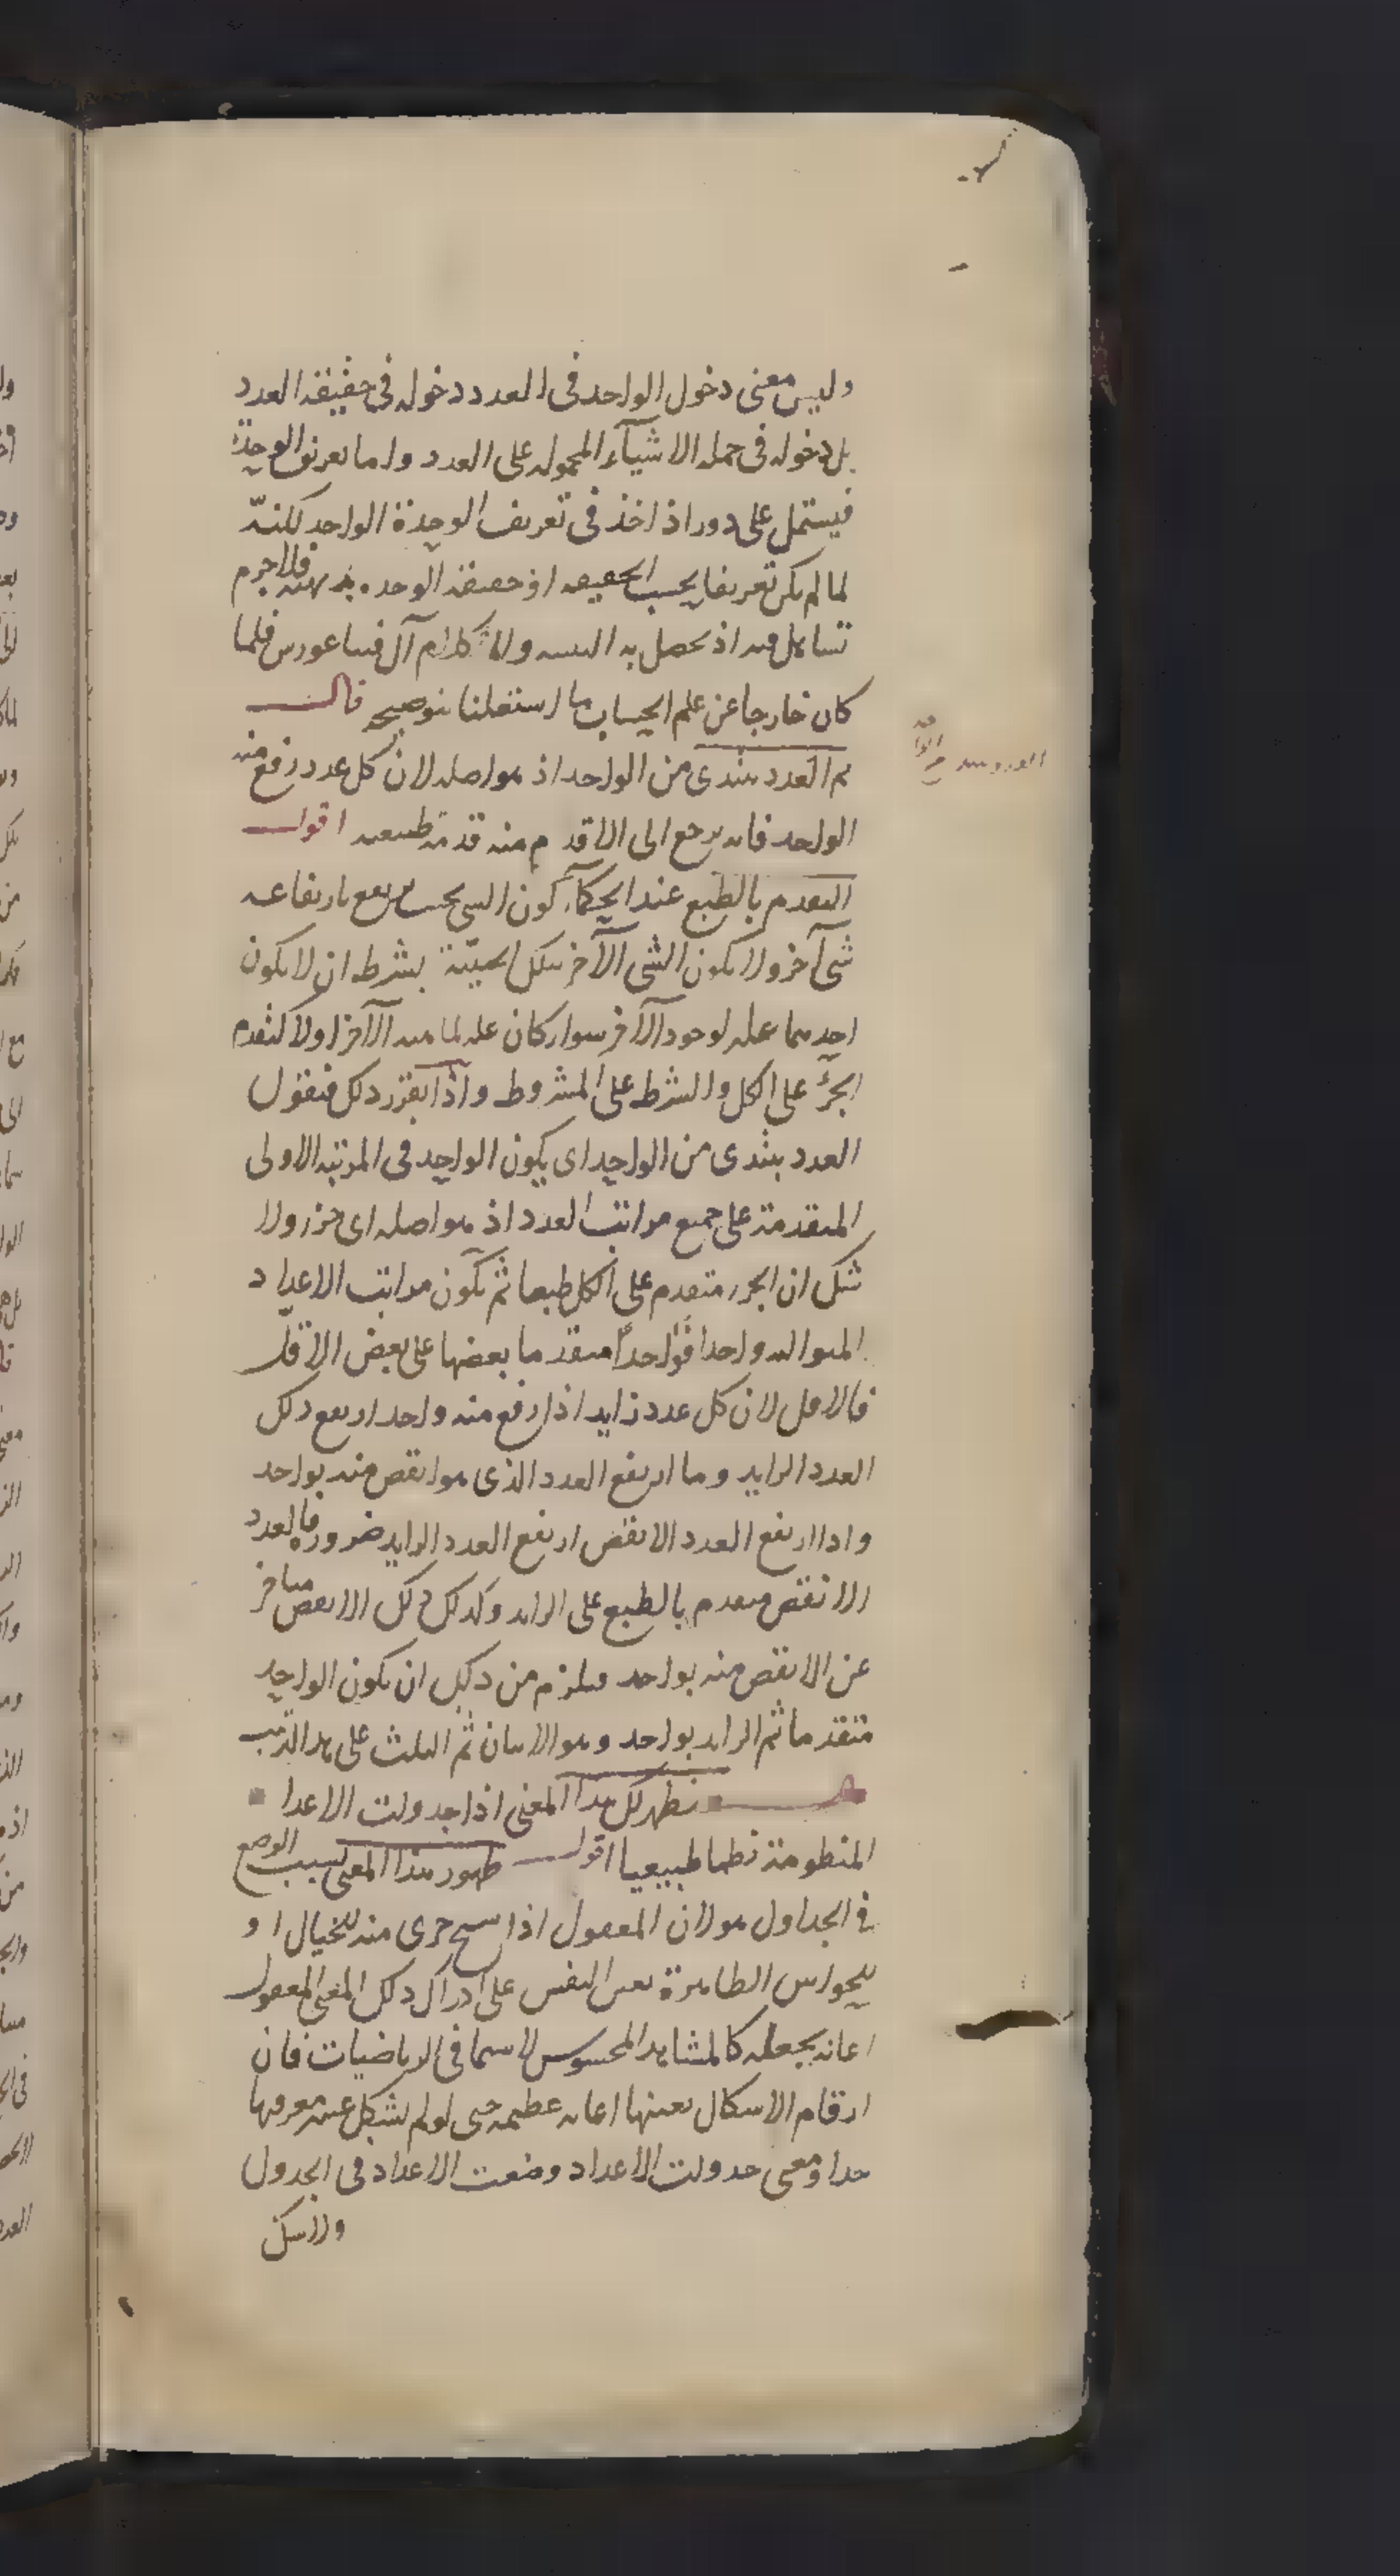 وليس معنى دخول الواحد فى العدد دخوله فى حقيقة العدد
بل دخوله فى جملة الاشيآء المحمولة على العدد واما تعريف الوحدة
فيشتمل على دور اذ اخذ فى تعريف الوحدة الواحد لكنه
لما لم يكن تعريفا بحسب الحقيقة اذ حقيقة الوحدة بديهية فلا جرم
تساهل فيه اذ يحصل به التنبيه ولا كلام آل فيثاغورس فلما
كان خارجا عن علم الحساب ما اشتغلنا بتوضيحه قال
ثم العدد يبتدى من الواحد اذ هو اصله لان كل عدد رفع منه
الواحد فانه يرجع الى الاقدم منه قدمة طبيعية اقول
التقدم بالطبع عند الحكمآء كون الشى بحيث يرتفع بارتفاعه
شى آخر ولا يكون الشى الآخر بتلك الحيثية بشرط ان لا يكون
احدهما علة لوجود الآخر سواء كان علة لماهية الآخر او لا كتقدم
الجزء على الكل والشرط على المشروط واذا تقرر ذلك فنقول
العدد يبتدى من الواحد اى يكون الواحد فى المرتبة الاولى
المتقدمة على جميع مراتب العدد اذ هو اصله اى جزء ولا
شك ان الجزء متقدم على الكل طبعا ثم تكون مراتب الاعداد
المتوالية واحدا فواحدا متقدما بعضها على بعض الاقل
فالاقل لان كل عدد زايد اذا رفع منه واحد ارتفع ذلك
العدد الزايد وما ارتفع العدد الذى هو انقص منه بواحد
واذا ارتفع العدد الانقص ارتفع العدد الزايد ضرورة فالعدد
الانقص متقدم بالطبع على الزايد وكذلك ذلك الانقص متاخر
عن الانقص منه بواحد فيلزم من ذلك ان يكون الواحد
متقدما ثم الزايد بواحد وهو الاثنان ثم الثلث على هذا الترتيب
يظهر لك هذا المعنى اذا جدولت الاعدا
المنظومة نظما طبيعيا اقول ظهور هذا المعنى بسبب الوضع
فى الجداول هو لان المعقول اذا سنح جزى منه للخيال او
للحواس الظاهرة تعين النفس على ادراك ذلك المعنى المعقول
اعانة يجعله كالمشاهد المحسوس لا سيما فى الرياضيات فان
ارقام الاشكال تعينها اعانة عظيمة حتى لو لم يشكل عسر معرفتها
جدا ومعنى جدولت الاعداد وضعت الاعداد فى الجدول
ولا شك